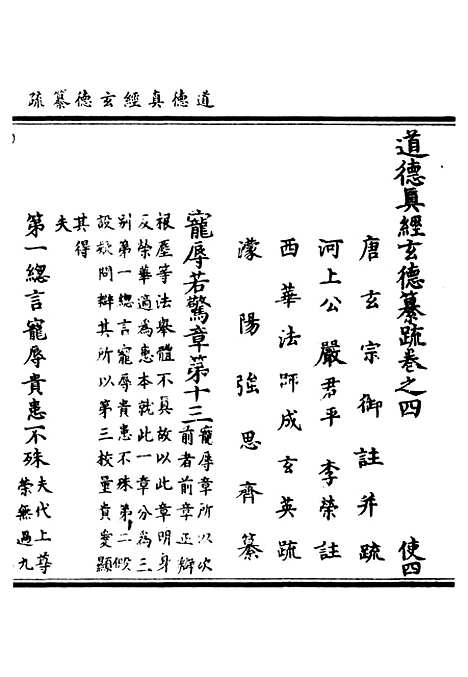 道德真經玄德纂疏
道德眞經玄德纂疏卷之四 使四
唐玄宗御註并疏
河上公嚴君平李榮註
西華法師成玄英疏
濛陽強思齊纂
寵辱若驚章第十三
寵辱章所以次
前者前章正辯
根塵等法舉體不具故以此章明身
反榮華適為患本就此一章分為三
別第一總言寵辱貴患不殊第二假
設欲問辯其所以第三校量貴愛顯
其得
夫
第一總言寵辱貴患不殊
夫代上尊
榮無過九